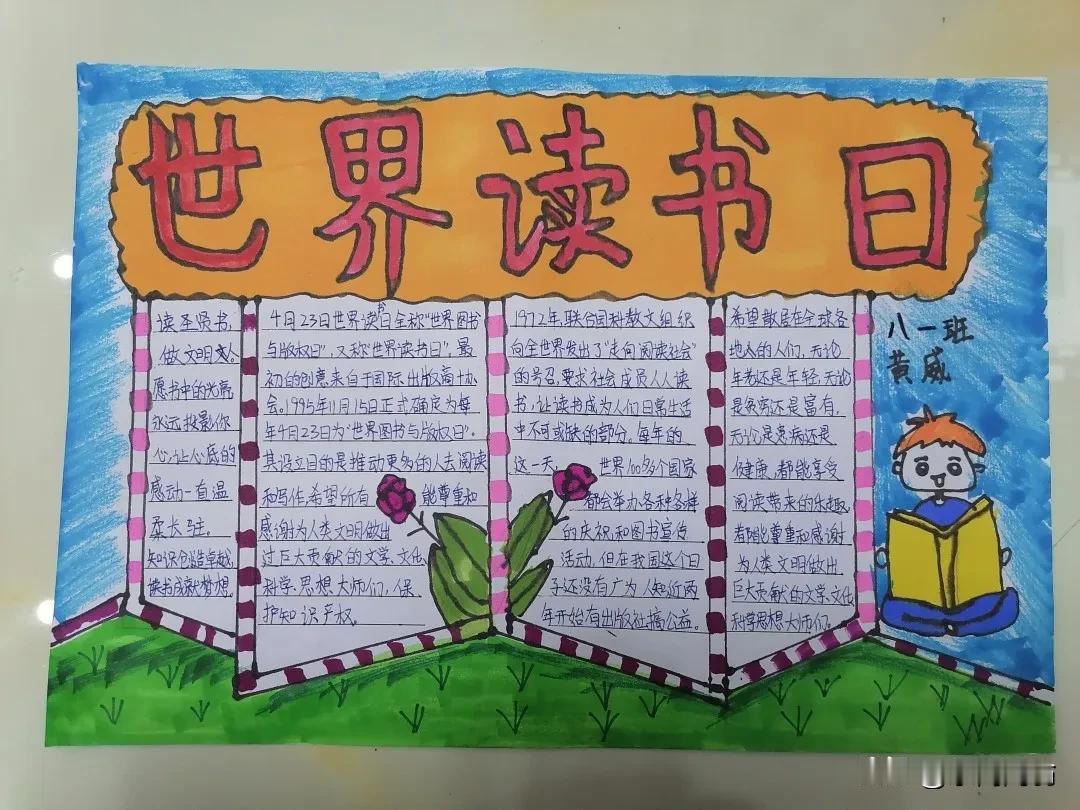 世界读书日
八一班
黄威
读圣贤书,
做文明人。
愿书中的光亮,
永远投影你
心,让心底的
感动一直温
柔长驻。
知识创造卓越,
读书成就梦想。
4月23日世界读书日全称“世界图书
与版权日”,又称“世界读书日”,最
初的创意来自于国际出版商协
会。1995年11月15日正式确定为每
年4月23日为“世界图书与版权日”。
其设立目的是推动更多的人去阅读
和写作,希望所有 能尊重和
感谢为人类文明做出
过巨大贡献的文学、文化
科学、思想大师们,保
护知识产权。
1972年,联合国科教文组织
向全世界发出了“走向阅读社会”
的号召,要求社会成员人人读
书,让读书成为人们日常生活
中不可或缺的部分。每年的
这一天, 世界100多个国家
都会举办各种各样
的庆祝和图书宣传
活动,但在我国这个日
子还没有广为人知近两
年开始有出版社搞公益。
希望散居在全球各
地的人们,无论
年老还是年轻,无论
是贫穷还是富有,
无论是患病还是
健康,都能享受
阅读带来的乐趣,
都能尊重和感谢
为人类文明做出
巨大贡献的文学、文化
科学思想大师们。